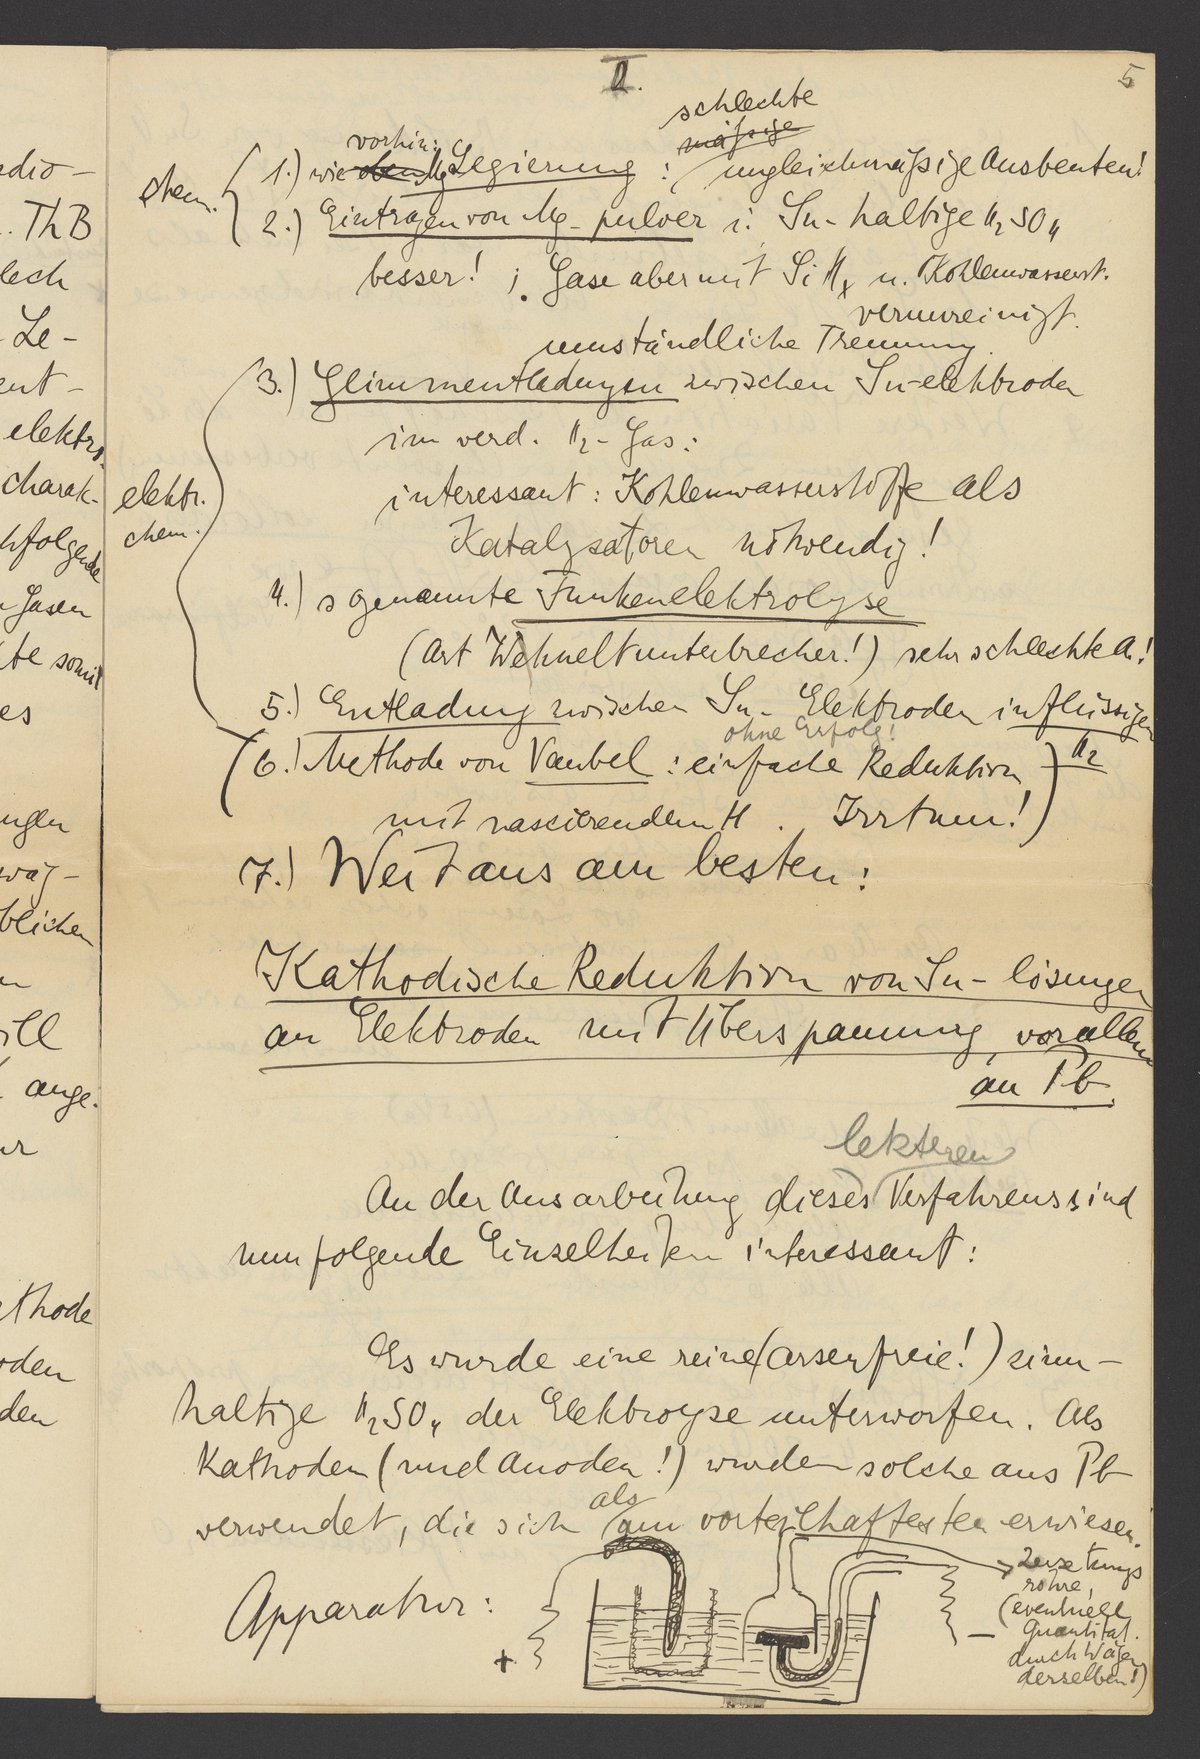 II.
5
schlechte
mäßige
vorhin:
chem. 1.) wie oben Mg Legierung : ungleichmäßige Ausbeuten!
2.) Eintragen von Mg-pulver i. Sn-haltige H2SO4
besser! ; Gase aber mit SiHx u. Kohlenwasserst.
verunreinigt.
umständliche Trennung.
3.) Glimmentladungen zwischen Sn-elektroden
im verd. H2-Gas:
interessant: Kohlenwasserstoffe als
elektr.
chem.
Katalysatoren notwendig!
4.) sogenannte Funkenelektrolyse
(Art Wehneltunterbrecher!) sehr schlechte A.!
5.) Entladung zwischen Sn-Elektroden in flüssigen
H2
ohne Erfolg!
(6.) Methode von Vaubel : einfache Reduktion
mit nascierendem H. Irrtum!)
7.) Weitaus am besten:
Kathodische Reduktion von Sn-lösungen
an Elektroden mit Überspannung, vor allem
an Pb.
letzteren
An der Ausarbeitung dieses Verfahrens sind
nun folgende Einzelheiten interessant:
Es wurde eine reine (arsenfreie!) zinn-
haltige H2SO4 der Elektrolyse unterworfen. Als
Kathoden (und Anoden!) wurden solche aus Pb
als
verwendet, die sich am vorteilhaftesten erwiesen.
Apparatur:
+
-
Zersetzungs
röhre,
(eventuell
Quantitat.
durch Wägen
derselben!)
dio-
ThB
lech
Le-
ent-
elektro.
charak-
hfolgende
Gasen
te somit
es
ngen
wäg-
blichen
ill
ange.
thode
oden
den